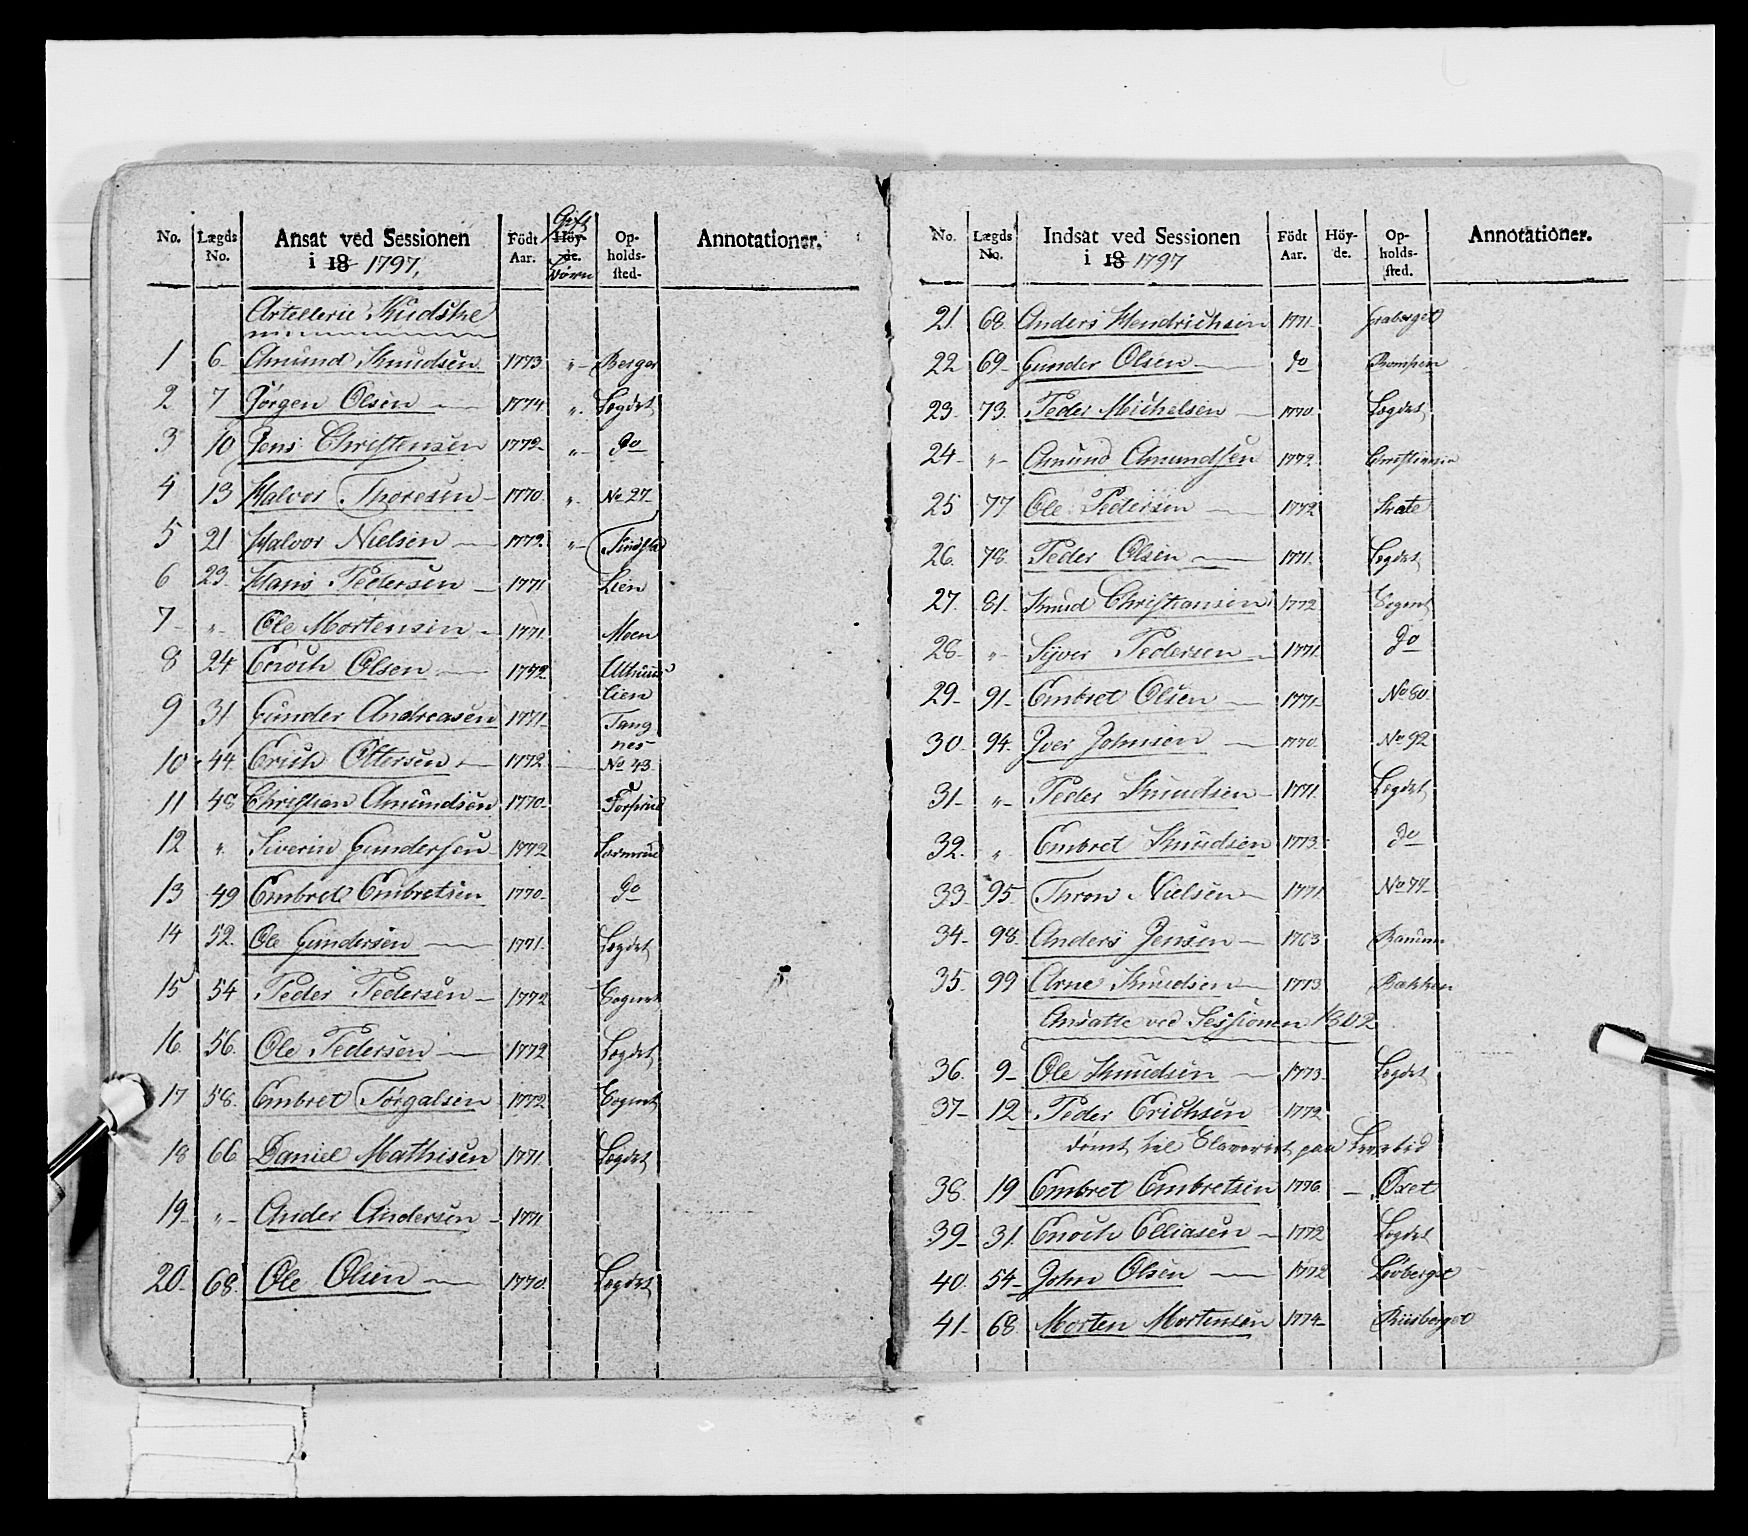 No. Lægds No. Ansat ved Sessionen i 18 1797, Födt Aar. Gift Höy- de. Børn Op- holds- sted. Annotationer.
Artellerie Kudske
1 6 Amund Knudsen 1773 " Berger
2 7 Jørgen Olsen 1774 " Lægdet
3 10 Jens Christensen 1772 " do
4 13 Halvor Thoresen 1770 " No 27
5 21 Halvor Nielsen 1772 "
6 23 Hans Pedersen 1771 Lien
7 " Ole Mortensen 1771 Moen
8 24 Enoch Olsen 1772
lien
9 31 Gunder Andreasen 1771 Tang
nes
10 44 Erich Ottersen 1772 No 43
11 48 Christian Amundsen 1770
12 " Siverin Gundersen 1772
13 49 Embret Embretsen 1770 do
14 52 Ole Gundersen 1771 Lægdet
15 54 Peder Pedersen 1772
16 56 Ole Pedersen 1772 Lægdet
17 58 Embret Torgalsen 1772
18 66 Daniel Mathisen 1771 Lægdet
19 " Ander Andersen 1771
20 68 Ole Olsen 1770 Lægdet
No. Lægds No. Indsat ved Sessionen i 18 1797 Födt Aar. Höy- de. Op- holds- sted. Annotationer.
21 68 Anders Hendrichsen 1771 Graberget
22 69 Gunder Olsen do
23 73 Peder Michelsen 1770 Lægdet
24 " Amund Amundsen 1772
25 77 Ole Pedersen 1772
26 78 Peder Olsen 1771 Lægdet
27 81 Knud Christiansen 1772
28 " Syver Pedersen 1771 do
29 91 Embret Olsen 1771 No 80
30 94 Iver Johnsen 1770 No 92
31 " Peder Knudsen 1771 Lægdet
32 " Embret Knudsen 1773 do
33 95 Thron Nielsen 1771
34 98 Anders Jensen 1763
35 99 Arne Knudsen 1773 Bakken
Ansatte ved Sessionen 1802
36 9 Ole Knudsen 1773 Lægdet
37 12 Peder Erichsen 1772
dømt til Slaveriet paa Livstid
38 19 Embret Embretsen 1776 Oset
39 31 Enoch Elliasen 1772 Lægdet
40 54 John Olsen 1772 Løvberget
41 68 Morten Mortensen 1774 Riisberget